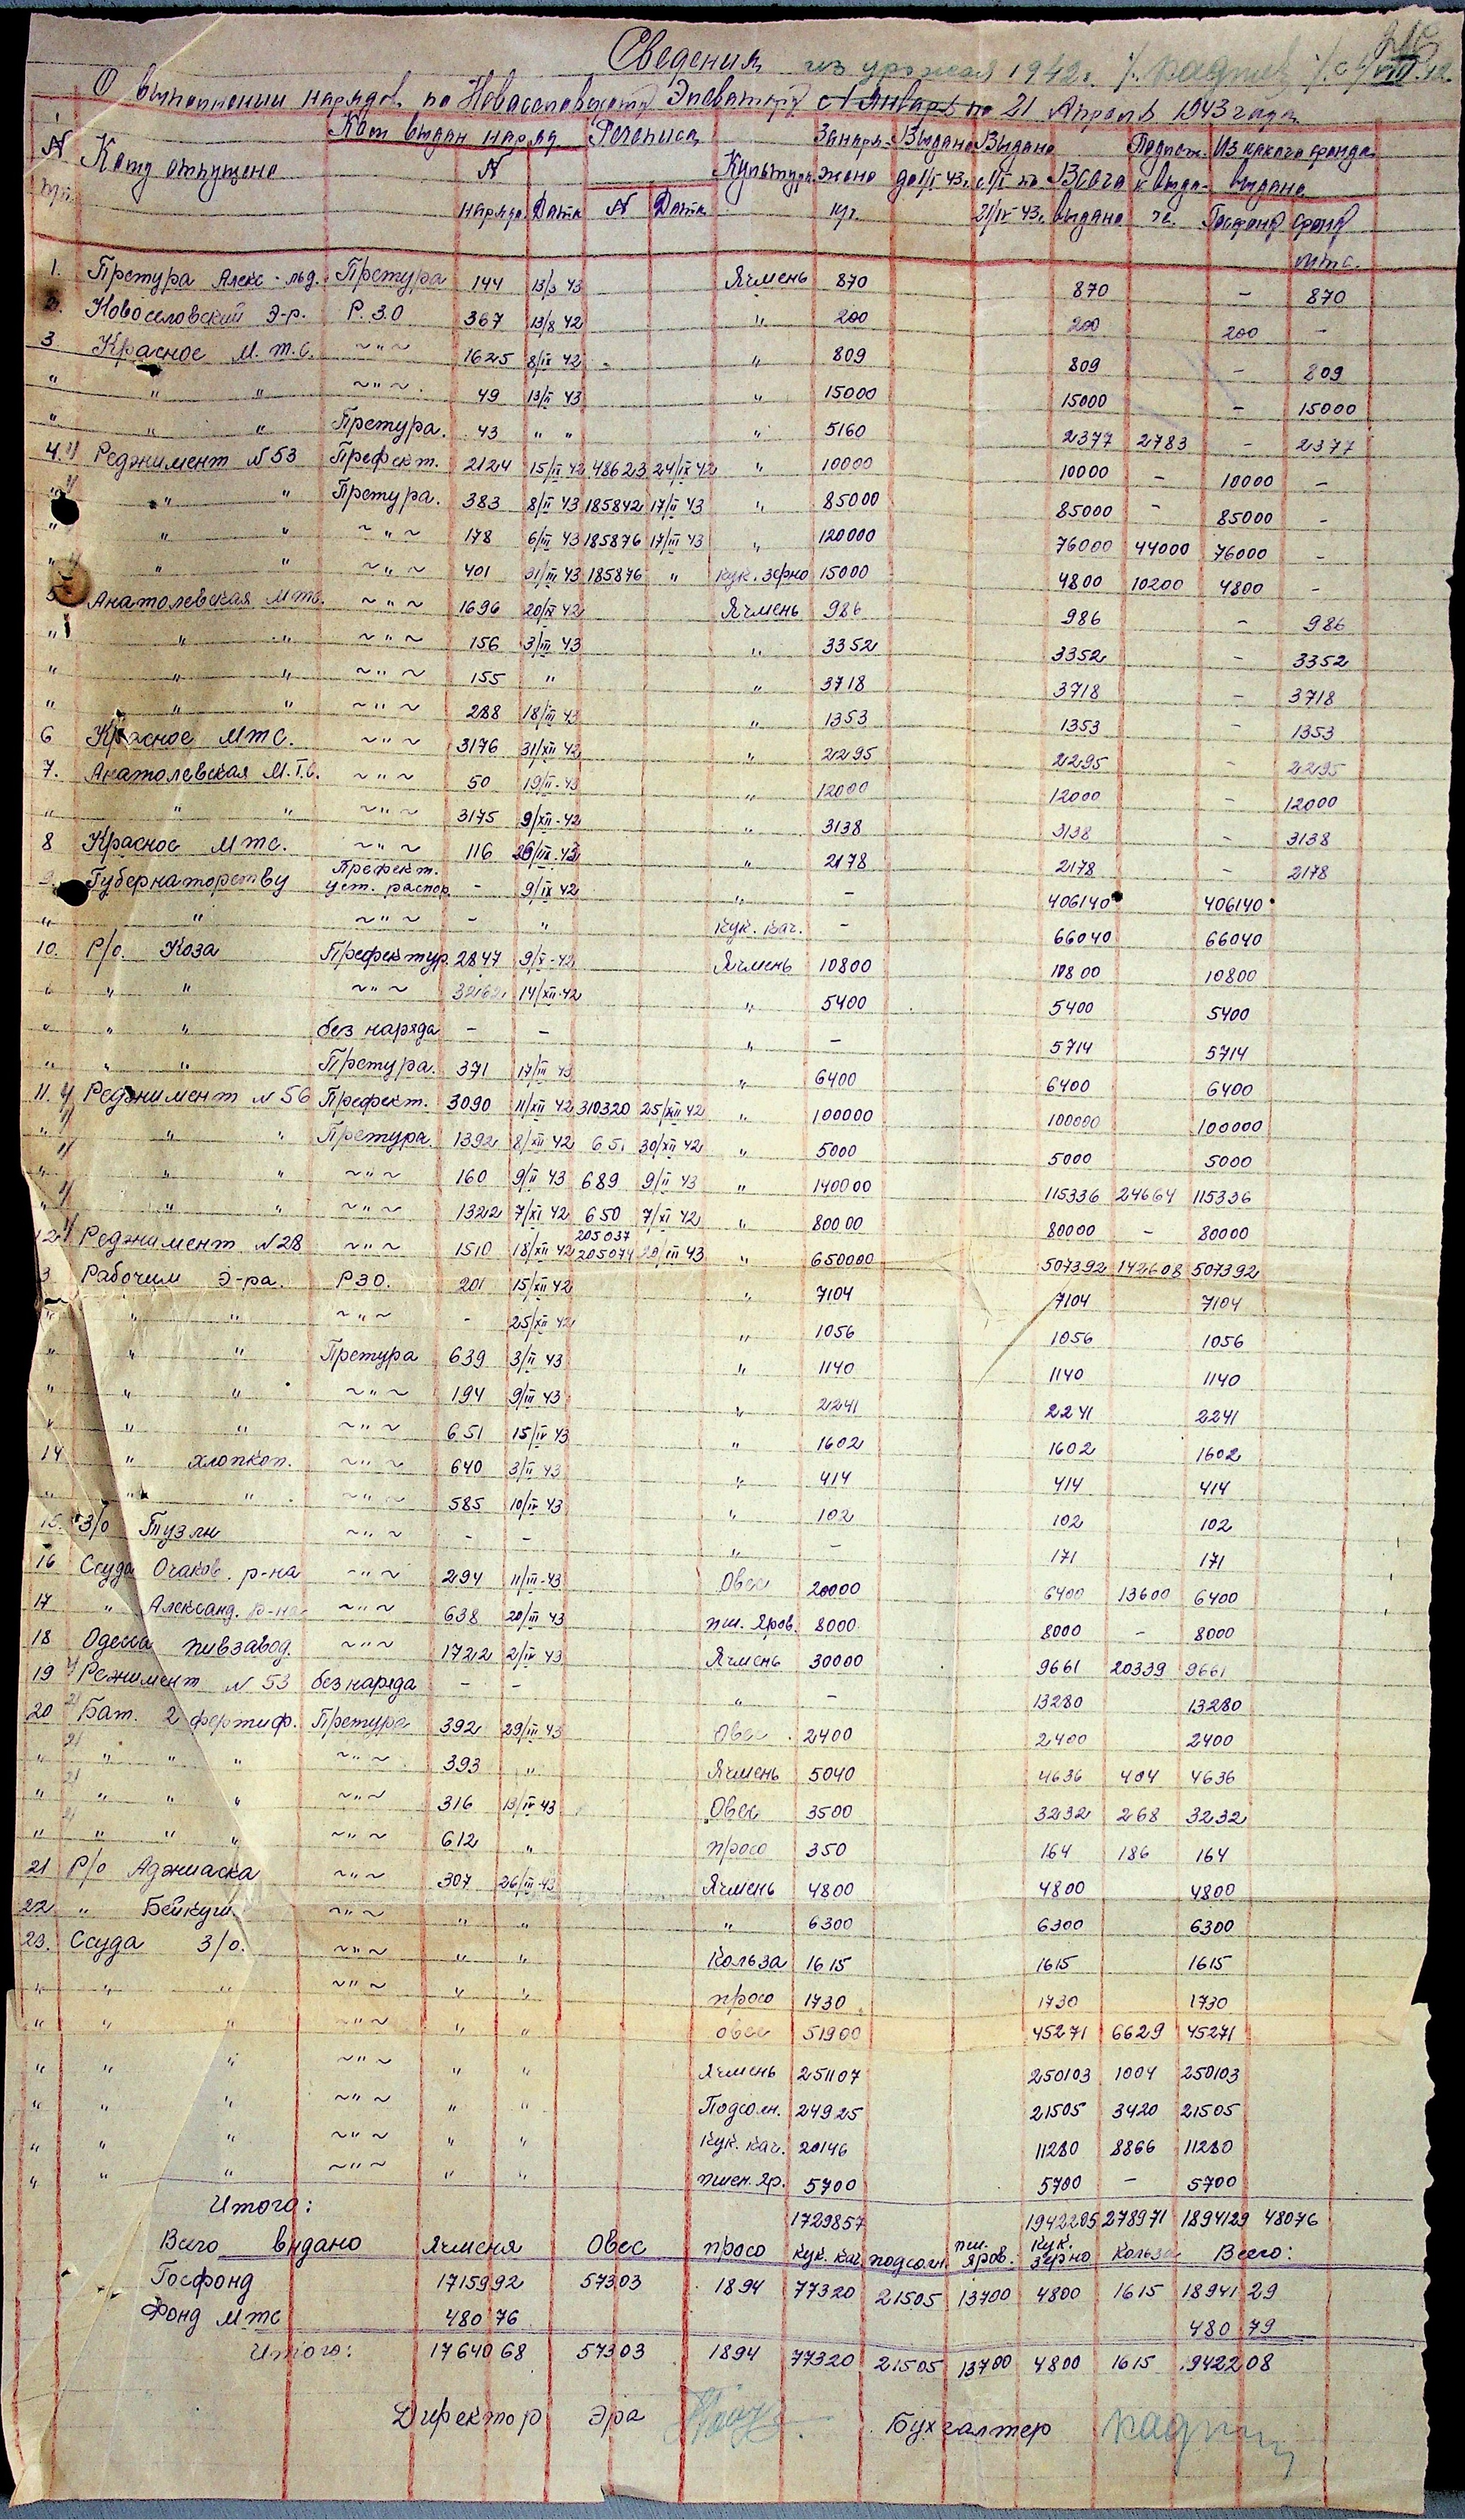 216
Сведения из урожая 1942г.
О выполнении нарядов по Новоселовскому Элеватору с 1 Января по 21 Апреля 1943 года
N п/п. Кому отпущено Кем выдан наряд N наряда Дата Рочописа N Дата Культура Занаряжено кгр. Выдано до 1/I 43г. Выдано с 1/I по 21/IV 43г. Всего выдано Подлеж. к выдаче. Из какого фонда выдано Госфонд Фонд мтс.
1. Претура Алекс-льд. Претура 144 13/3 43 Ячмень 870 870 - 870
2. Новоселовский Э-р. Р.З.О 367 13/8 42 " 200 200 200 -
3 Красное М.т.С. ~"~ 1625 8/IX 42 " 809 809 - 809
" " " ~"~ 49 13/II 43 " 15000 15000 - 15000
" " " Претура. 43 " " " 5160 2377 2783 - 2377
4. Реджимент N 53 Префект. 2124 15/II 42 48623 24/IX 42 " 10000 10000 - 10000 -
" " " Претура. 383 8/II 43 185842 17/II 43 " 85000 85000 - 85000 -
" " " ~"~ 178 6/III 43 185876 17/III 43 " 120000 76000 44000 76000 -
" " " ~"~ 401 31/III 43 185876 " кук. зерно 15000 4800 10200 4800 -
5 Анатолевская мтс. ~"~ 1696 20/IX 42 Ячмень 986 986 - 986
" " " ~"~ 156 3/III 43 " 3352 3352 - 3352
" " " ~"~ 155 " " 3718 3718 - 3718
" " " ~"~ 288 18/III 43 " 1353 1353 - 1353
6 Красное мтс. ~"~ 3176 31/XII 42 " 2295 2295 - 2295
7. Анатолевская М.Т.С. ~"~ 50 19/II-43 " 12000 12000 - 12000
" " " ~"~ 3175 9/XII-42 " 3138 3138 - 3138
8 Красное мтс. ~"~ 116 " 2178 2178 - 2178
9. Губернаторству Префект. уст. распор. - 9/IX 42 " - 406140 406140
" " ~"~ - " кук. кач. - 66040 66040
10. Р/о. Коза Префектур. 2847 9/X-42 Ячмень 10800 10800 10800
" " " ~"~ 14/XII-42 " 5400 5400 5400
" " " без наряда - - " - 5714 5714
" " " Претура. 371 17/III 43 " 6400 6400 6400
11. Реджимент N 56 Префект. 3090 11/XII 42 310320 25/XII 42 " 100000 100000 100000
" " " Претура. 1392 8/XII 42 651 30/XII 42 " 5000 5000 5000
" " " ~"~ 160 9/II 43 689 9/II 43 " 140000 115336 24664 115336
" " " ~"~ 1322 7/XI 42 650 7/XI 42 " 80000 80000 - 80000
12 Реджимент N 28 ~"~ 1510 18/XII 42 205037 205074 20/III 43 " 650000 507392 142608 507392
3 Рабочим Э-ра. РЗО. 201 15/XII 42 " 7104 7104 7104
" " " ~"~ - 25/XII 42 " 1056 1056 1056
" " " Претура 639 3/II 43 " 1140 1140 1140
" " " ~"~ 194 9/III 43 " 2241 2241 2241
" " " ~"~ 651 15/IV 43 " 1602 1602 1602
14 " хлопкоп. ~"~ 640 3/II 43 " 414 414 414
" " " ~"~ 585 10/IV 43 " 102 102 102
15. З/о Тузли ~"~ - - " - 171 171
16 Ссуда Очаков. р-на ~"~ 294 11/III-43 Овес 20000 6400 13600 6400
17 " Александ. р-на ~"~ 638 20/III 43 пш. Яров. 8000 8000 - 8000
18 Одесса пивзавод. ~"~ 1722 2/IV 43 Ячмень 30000 9661 20339 9661
19 Режимент N 53 без наряда - - " - 13280 13280
20 Бат. 2 фортиф. Претура 392 29/III 43 Овес 2400 2400 2400
" " " " ~"~ 393 " Ячмень 5040 4636 404 4636
" " " " ~"~ 316 13/IV 43 Овес 3500 3232 268 3232
" " " " ~"~ 612 " просо 350 164 186 164
21 Р/о Аджиаска ~"~ 307 26/III-43 Ячмень 4800 4800 4800
22 " Бейкуш ~"~ " " " 6300 6300 6300
23. Ссуда З/о. ~"~ " " Кольза 1615 1615 1615
" " " ~"~ " " просо 1730 1730 1730
" " " ~"~ " " овес 51900 45271 6629 45271
" " " ~"~ " " Ячмень 251107 250103 1004 250103
" " " ~"~ " " Подсолн. 24925 21505 3420 21505
" " " ~"~ " " Кук. кач. 20146 11280 8866 11280
" " " ~"~ " " пшен. Яр. 5700 5700 - 5700
Итого: 1729857 1942205 278971 1894129 48076
Всего выдано Ячменя Овес просо кук. кач. подсолн. пш. Яров. кук. зерно Кольза Всего:
Госфонд 1715992 57303 1894 77320 21505 13700 4800 1615 1894129
Фонд мтс 48076 48079
Итого: 1764068 57303 1894 77320 21505 13700 4800 1615 1942208
Директор Эра Бухгалтер